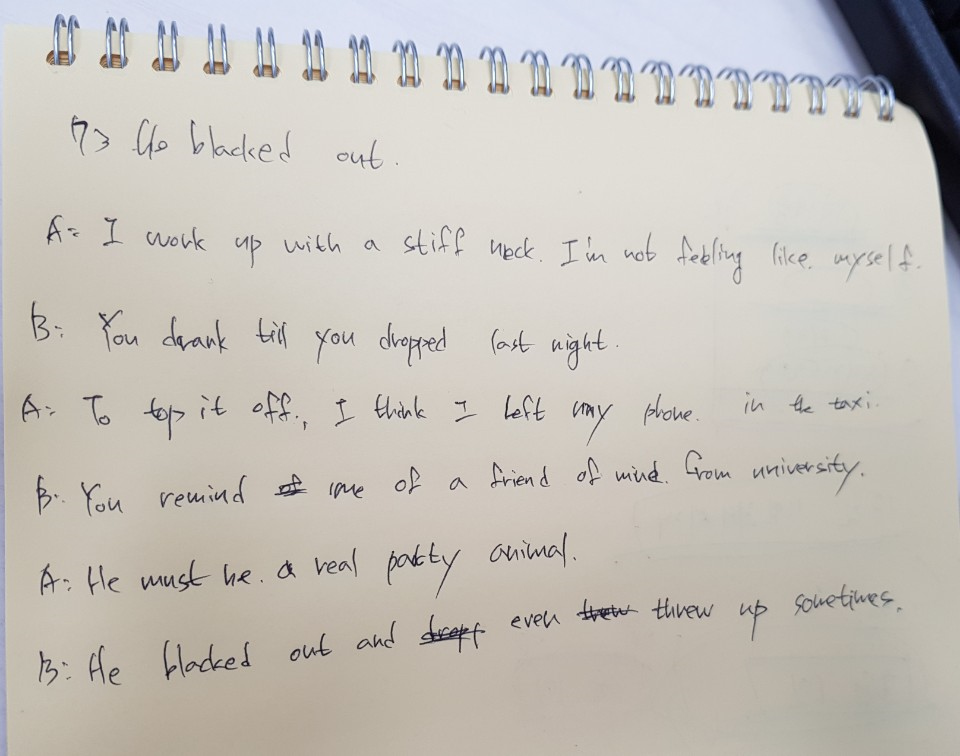 73 He blacked out.
A: I work up with a stiff neck. I'm not feeling like myself.
B: You drank till you dropped last night.
A: To top it off, I think I left my phone. in the taxi.
B: You remind of me of a friend of mind. from university.
A: He must be. a real party animal.
B: He blacked out and dropf even trew threw up sometimes.